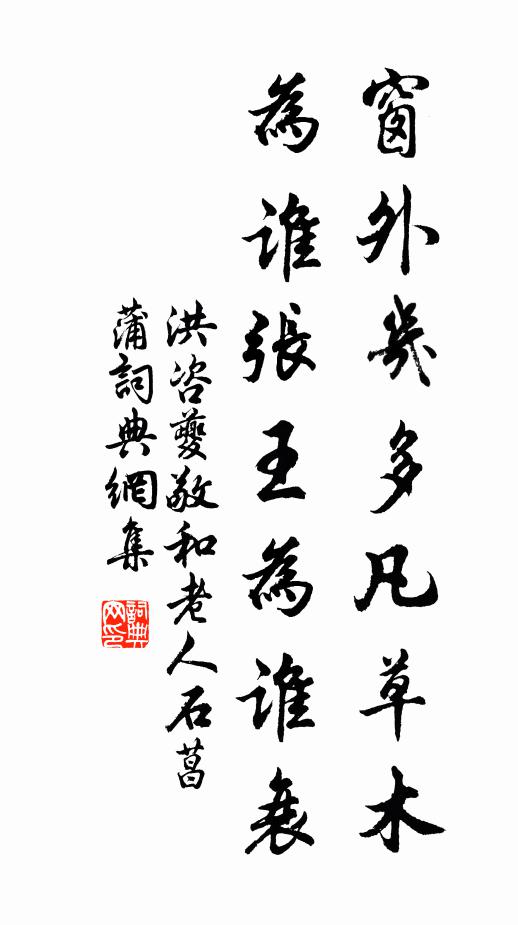 窗外幾多凡草木
為誰張王為誰衰
洪咨夔敬和老人石菖
蒲詞典網集
詞典網印